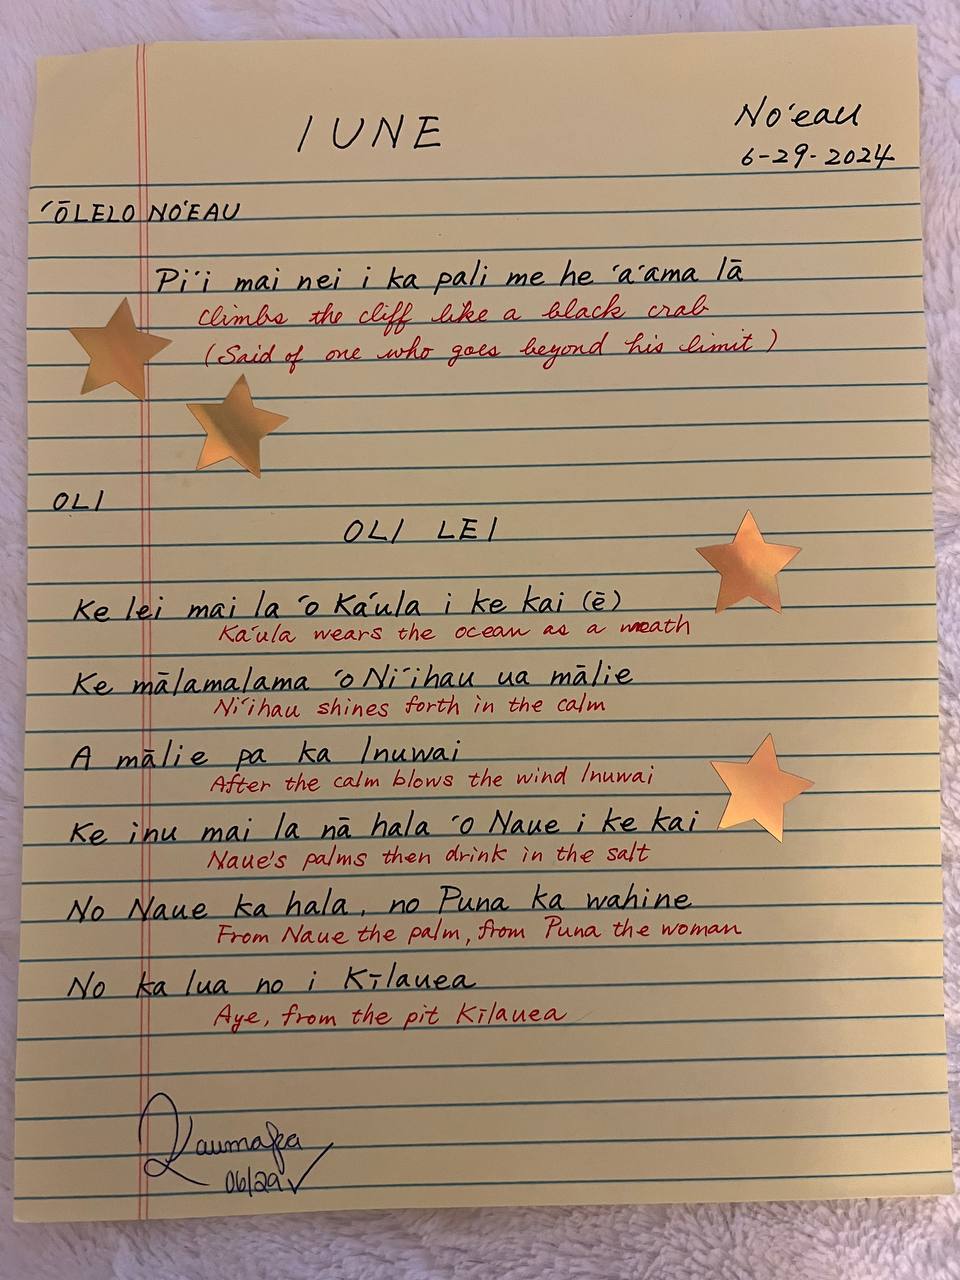 IUNE
No'eau
6-29-2024
'ŌLELO NO'EAU
Pi'i mai nei i ka pali me he 'a'ama lā
climbs the cliff like a black crab
(Said of one who goes beyond his limit)
OLI
OLI LEI
Ke lei mai la 'o Ka'ula i ke kai (ē)
Ka'ula wears the ocean as a wreath
Ke mālamalama 'o Ni'ihau ua mālie
Ni'ihau shines forth in the calm
A mālie pa ka Inuwai
After the calm blows the wind Inuwai
Ke inu mai la nā hala 'o Naue i ke kai
Naue's palms then drink in the salt
No Naue ka hala, no Puna ka wahine
From Naue the palm, from Puna the woman
No ka lua no i Kīlauea
Aye, from the pit Kīlauea
Kaumaka
06/29✓